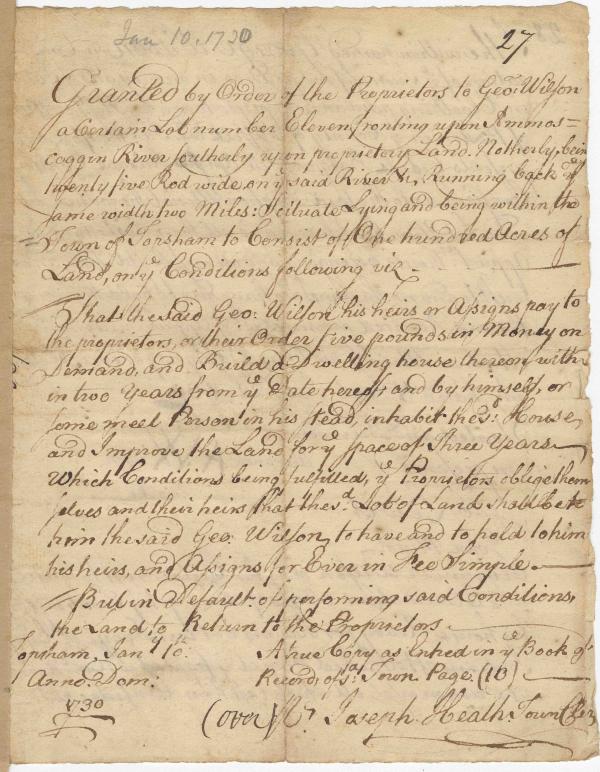 Jan 10. 1730
27
Granted by Order of the Proprietors to Geo: Wilson
a Certain Lot number Eleven fronting upon Ammos=
coggin River southerly upon propriety Land. Notherly, bein
twenty five Rod wide, on ye said River &, Running back ye
same width two Miles: Scituate Lying and being within, the
=Town of Torsham to Consist of One hundred Acres of
Land, on ye Conditions following viz -
That the said Geo: Wilson his heirs or Assigns pay to
the proprietors, or their Order five pounds in Money on
Demand, and Build a Dwelling house thereon with
in two Years from ye Date hereof, and by himself, or
some meet Person in his stead, inhabit the sd. House,
and Improve the Land for ye space of Three Years
Which Conditions being fulfilled, ye Proprietors oblige them
selves and their heirs that the sd. Lot of Land shall be to
him the said Geo: Wilson, to have and to hold to him
his heirs, and Assigns for Ever in Fee Simple.
But in Default of performing said Conditions,
the Land to Return to the Proprietors.
Topsham, Jany 10th.
Anno: Dom:
1730
A true Copy as Entred in ye Book of
Record, of sd. Town Page (10)
(over) Joseph Heath Town Cler